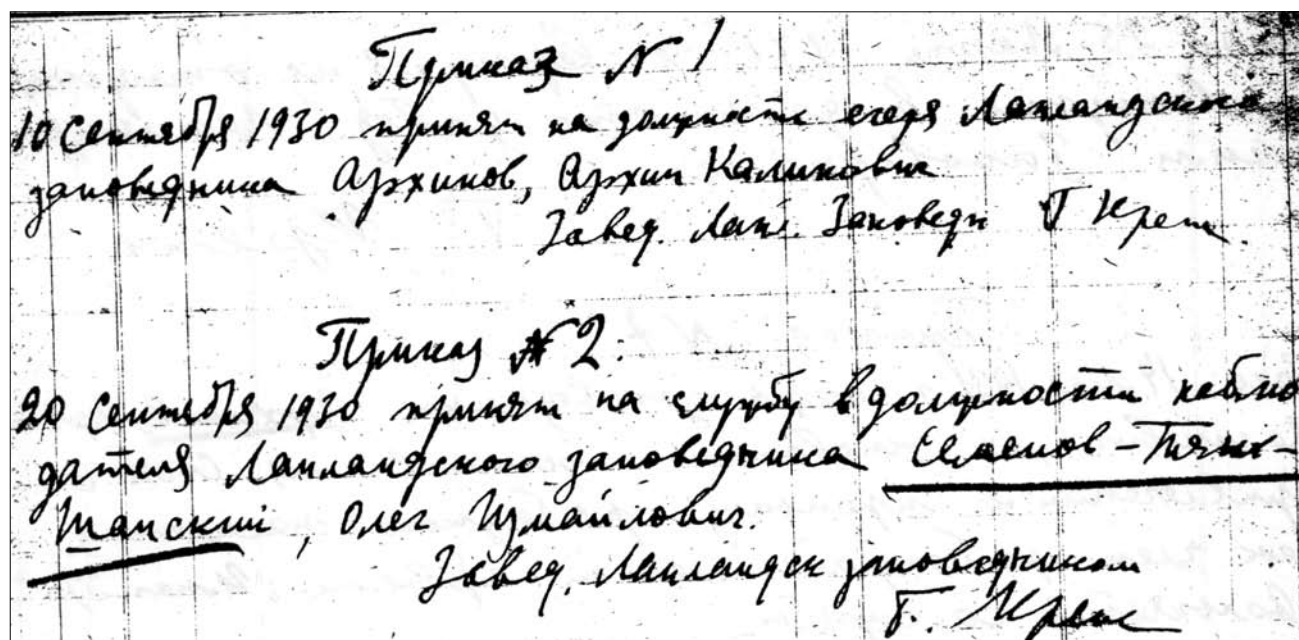 Приказ N 1
10 Сентября 1930 принят на должность егеря Лапландского
заповедника Архипов, Архип Калинович
Завед. Лапл. Заповедн Г Крепс
Приказ № 2.
20 Сентября 1930 принят на службу в должности наблю
дателя Лапландского заповедника Семенов-Тянь-
Шанский, Олег Измайлович.
Завед. Лапландск заповедником
Г. Крепс